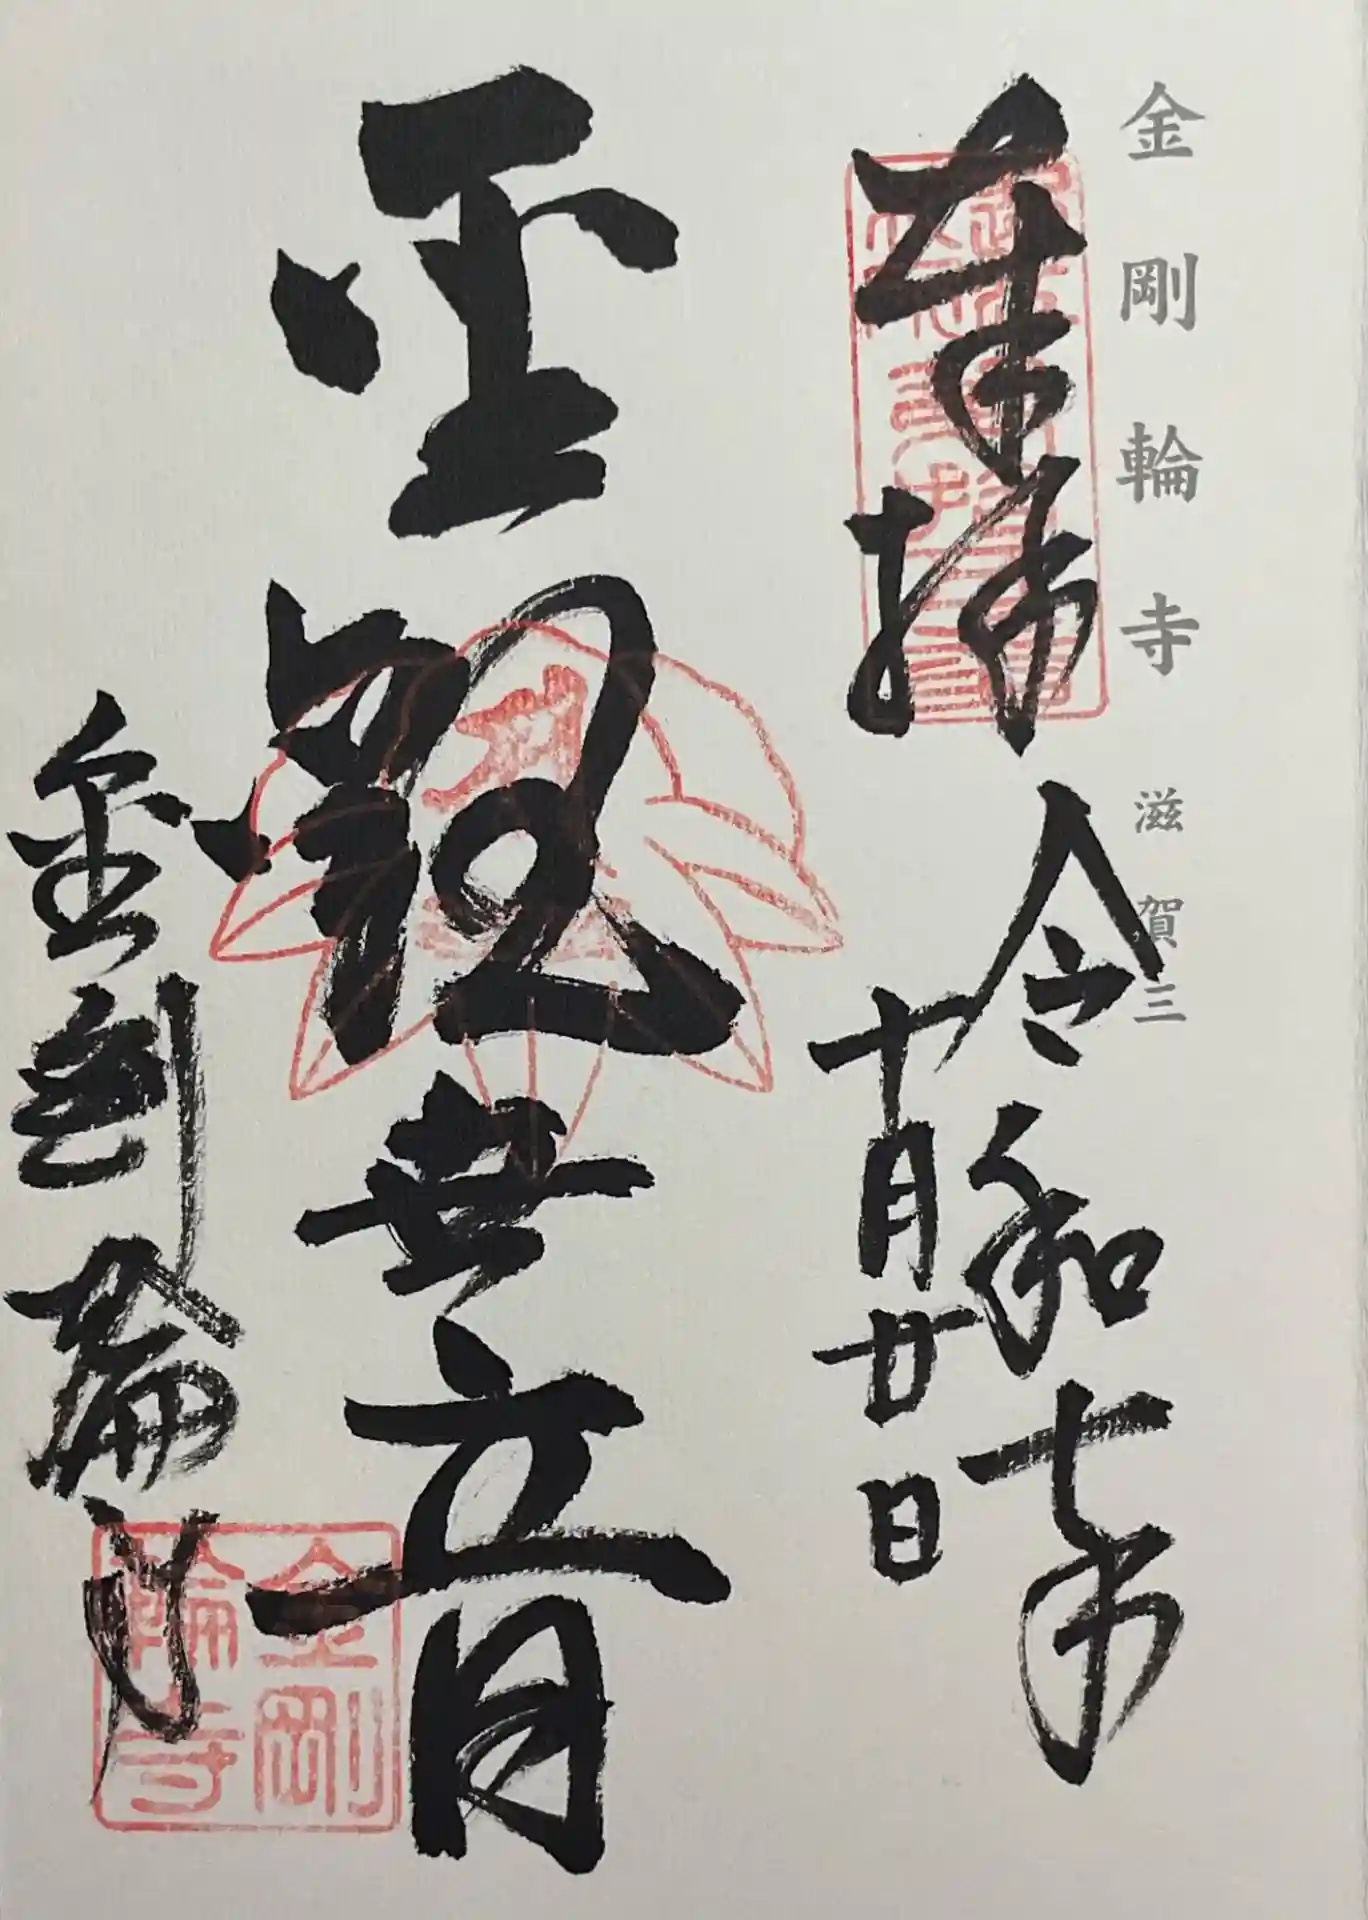 金剛輪寺 滋賀三
奉拝
令和七年
十月廿日
聖観世音
金剛輪寺
金剛
輪寺